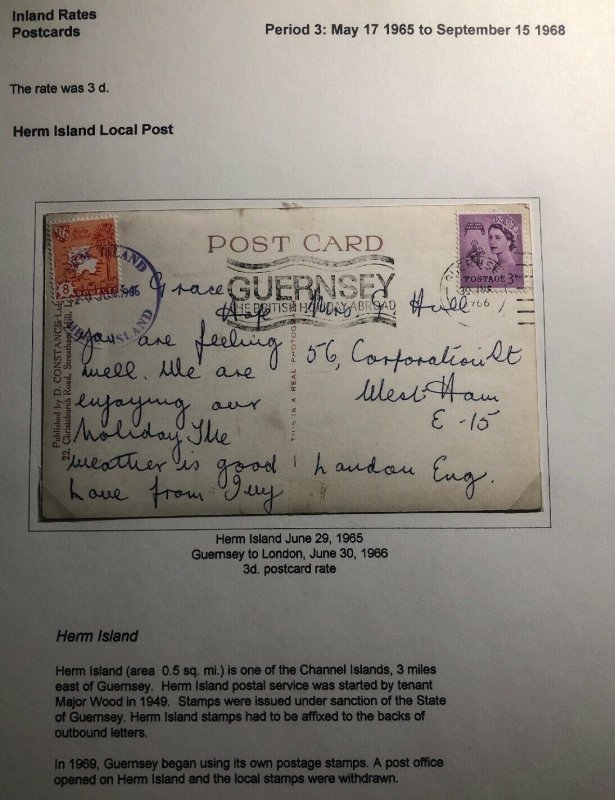 Inland Rates
Postcards
Period 3: May 17 1965 to September 15 1968
The rate was 3 d.
Herm Island Local Post
POST CARD
Herm Island
8
DOUBLES
HERM ISLAND
29 JUN 1966
HERM ISLAND
GUERNSEY
THE BRITISH HOLIDAY ABROAD
GUERNSEY
30 JUN
1966
POSTAGE 3D
Published by D. CONSTANCE
22, Christchurch Road, Streatham Hill,
THIS IS A REAL PHOTOGRAPH
Dear Grace
Hope
you are feeling
well. We are
enjoying our
holiday The
weather is good
Love from
Mrs. G Hull
56, Corporation St
West Ham
E-15
London Eng.
Herm Island June 29, 1965
Guernsey to London, June 30, 1966
3d. postcard rate
Herm Island
Herm Island (area 0.5 sq. mi.) is one of the Channel Islands, 3 miles
east of Guernsey. Herm Island postal service was started by tenant
Major Wood in 1949. Stamps were issued under sanction of the State
of Guernsey. Herm Island stamps had to be affixed to the backs of
outbound letters.
In 1969, Guernsey began using its own postage stamps. A post office
opened on Herm Island and the local stamps were withdrawn.